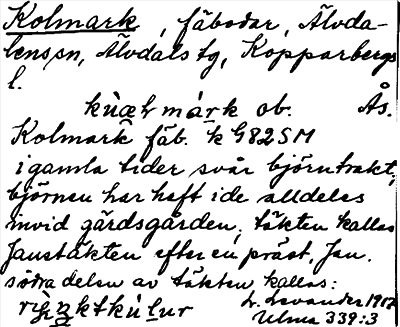 Kolmark, fäbodar, Älvda-
lens sn, Älvdals tg, Kopparbergs
l.
kùæԏ márk ob. Ås.
Kolmark fäb. k G82SM
i gamla tider svår björntrakt,
björnen har haft ide alldeles
invid gärdsgården, täkten kallas
Janstäkten efter en präst, Jan.
södra delen av täkten kallas:
L. Levander 1917
Ulma 339:3